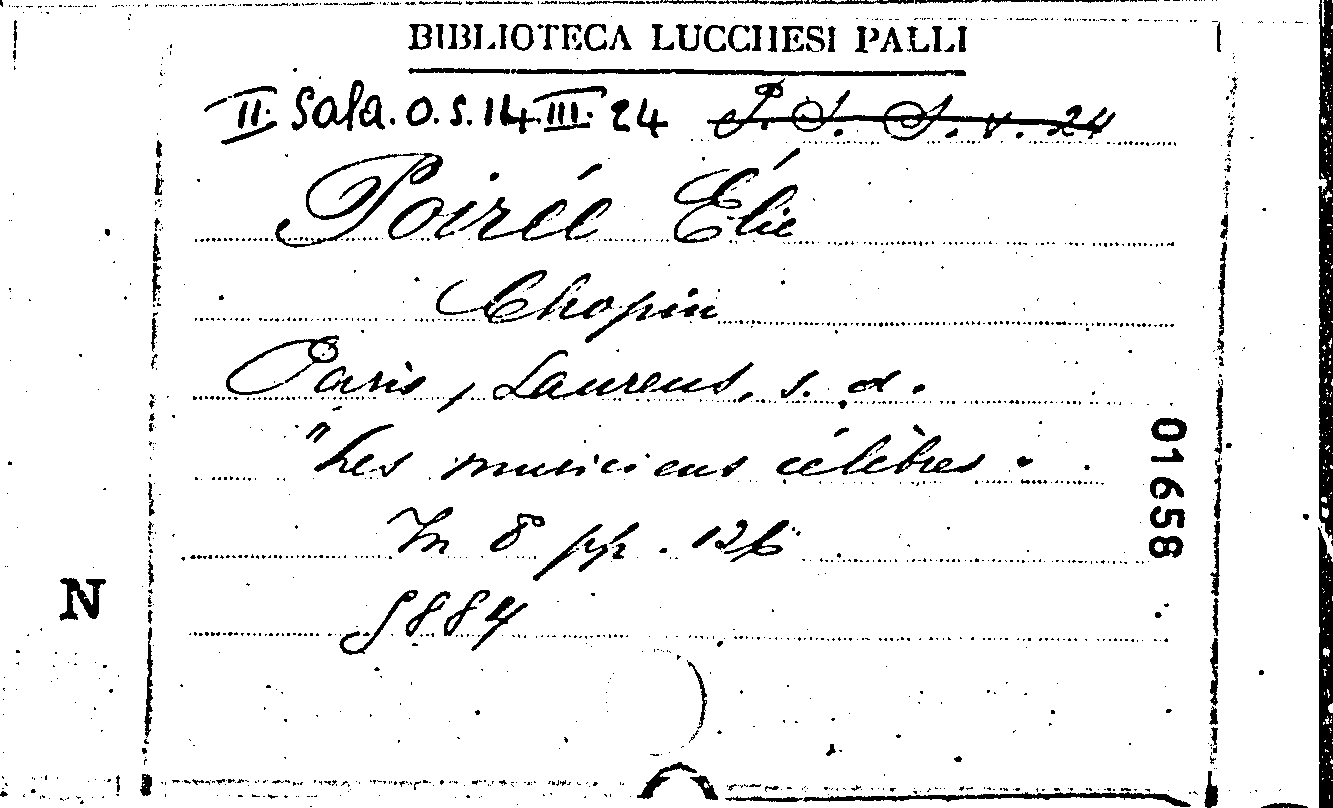 BIBLIOTECA LUCCHESI PALLI
II. Sala. O.S. 14. III. 24 P. S. S. v. 24
Poirée Élie
Chopin
Paris, Laurens, s. d.
"Les musiciens célèbres.
In 8° pp. 126
5884
01658
N